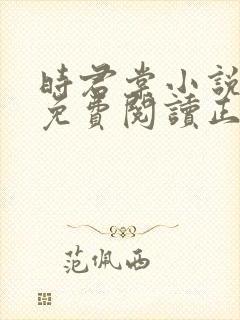 時君棠小說
免費閱讀正
范佩西